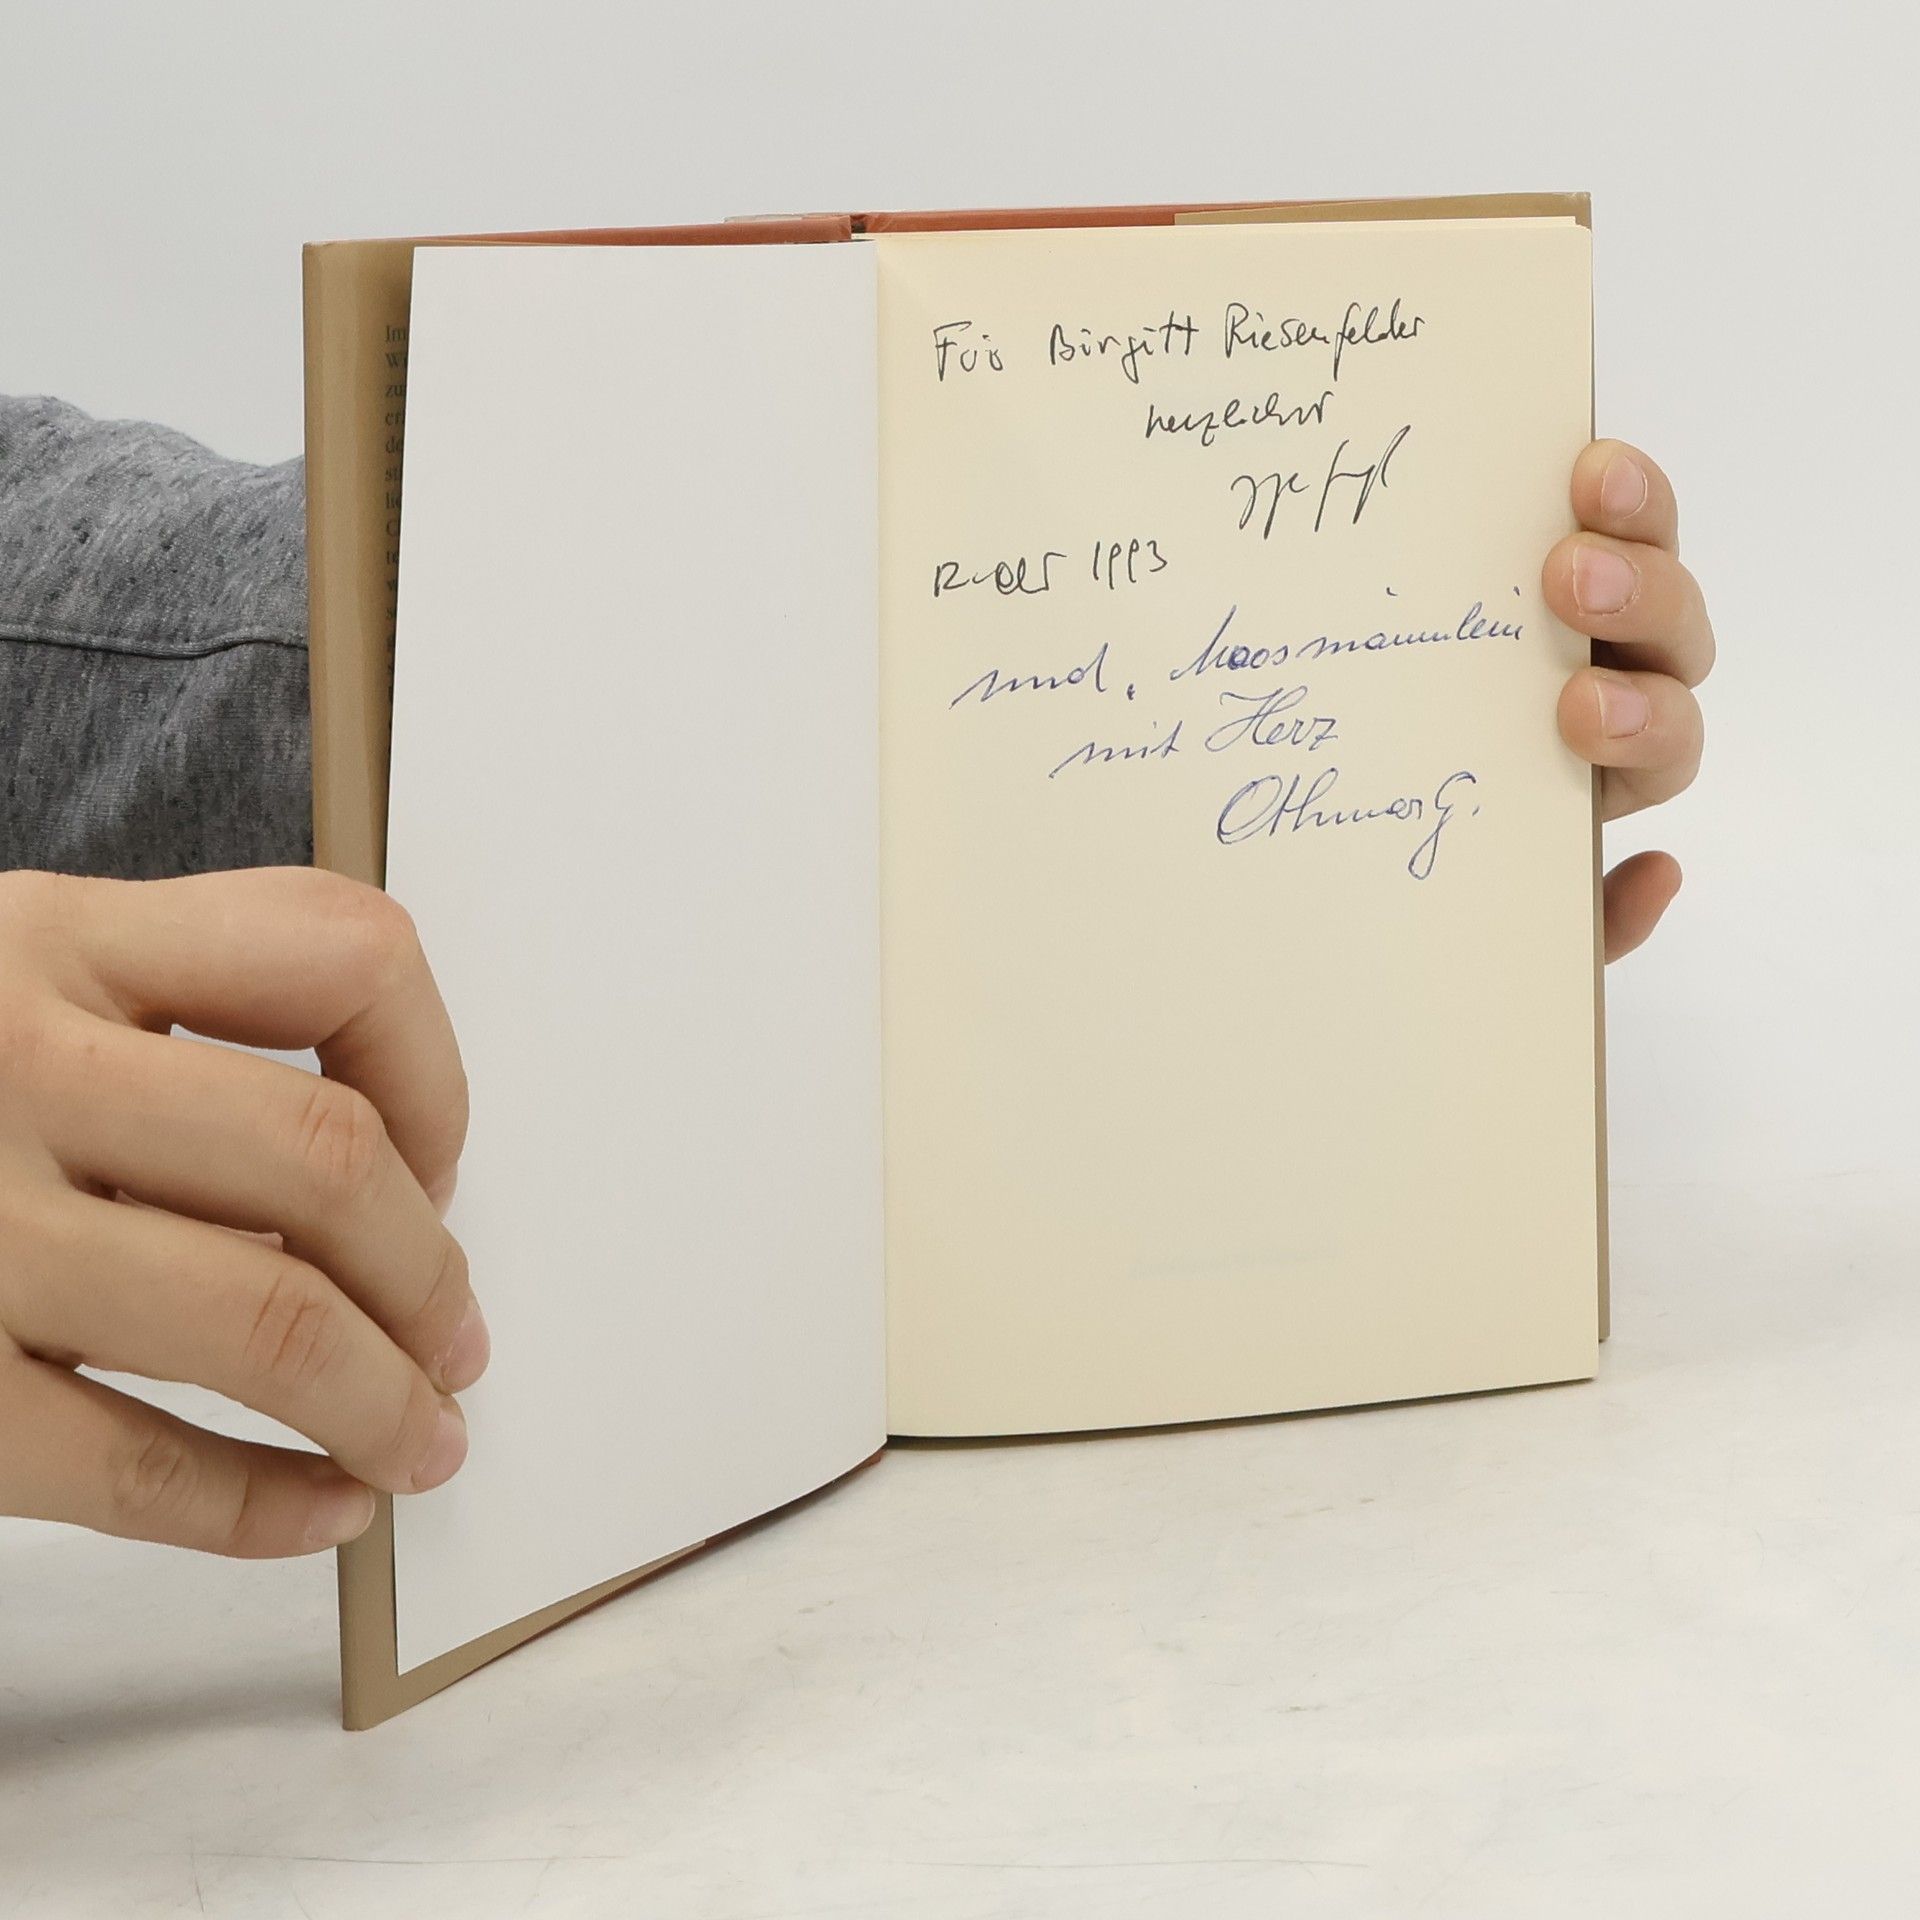 Im
Für Birgitt Riesenfelder
herzlichst
1993
und, Moosmännlein
mit Herz
Othmar G.